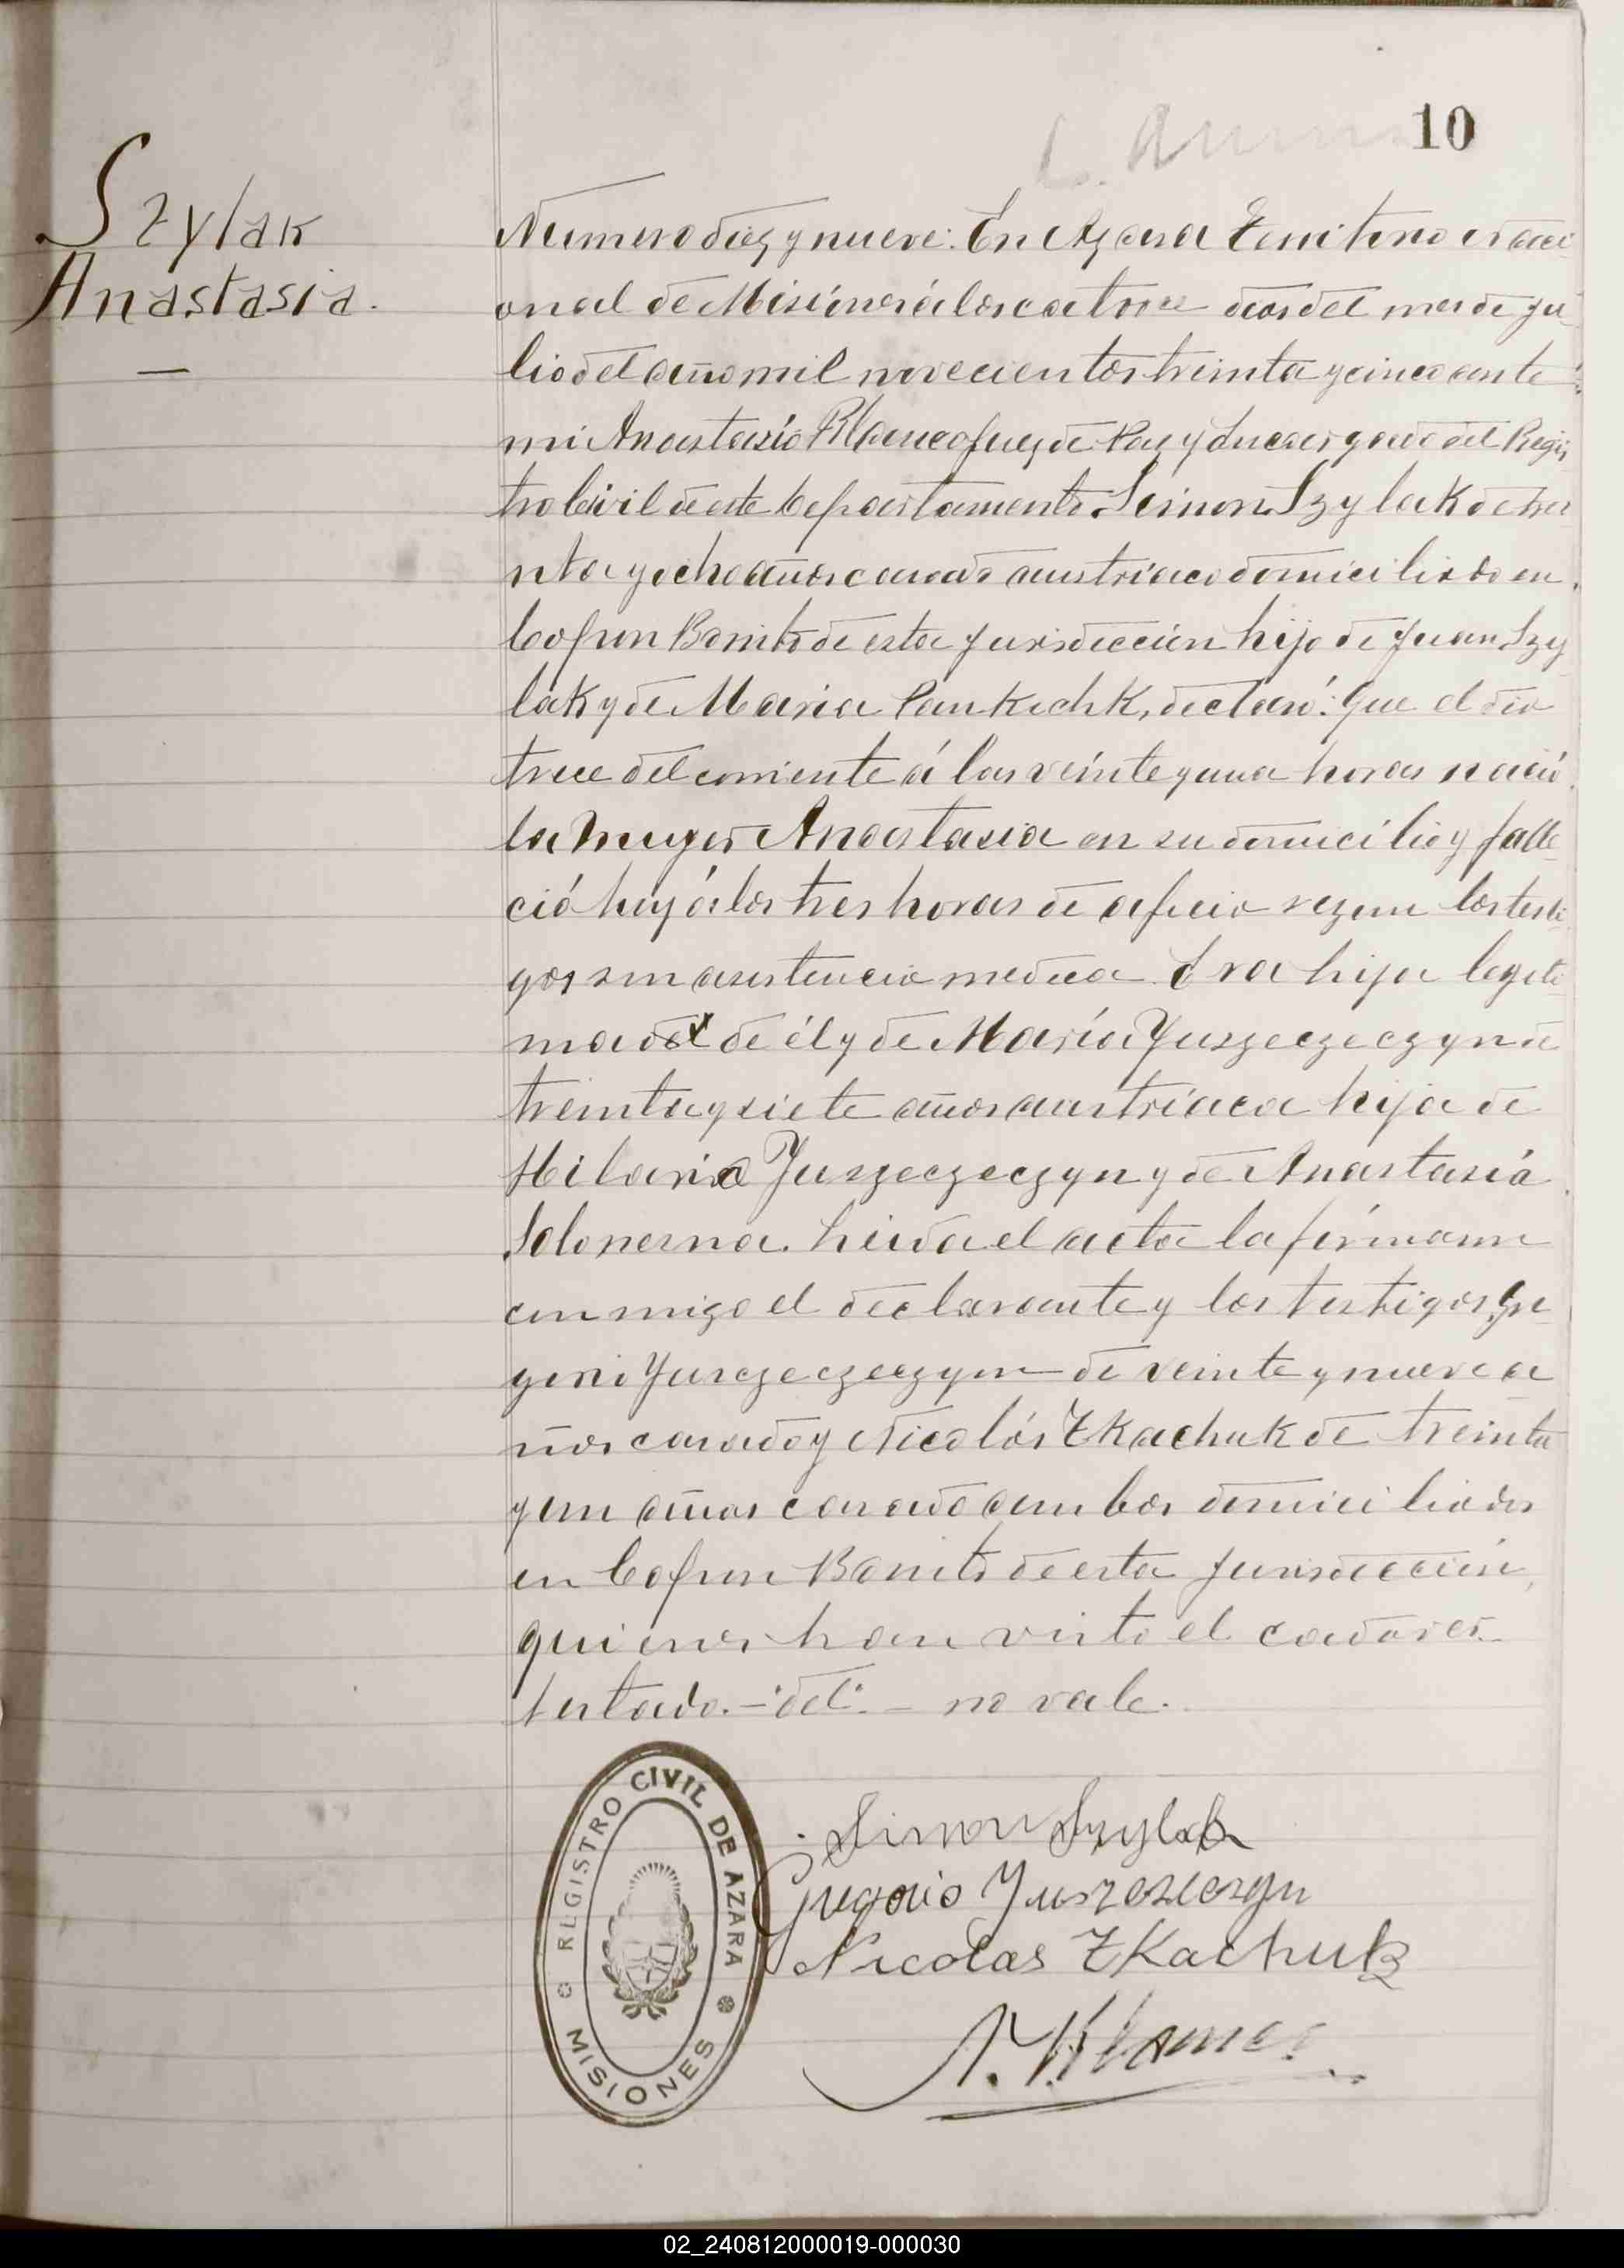 10
Szylak
Anastasia.
Numero diez y nueve: En Azara Territorio naci-
onal de Misiones á los catorce dias del mes de ju-
lio del año mil novecientos treinta y cinco ante
mi Anastasio Blanco Juez de Paz y Encargado del Regis-
tro Civil de este Departamento. Simon Szylak de trei-
nta y ocho años casado austriaco domiciliado en
Cofun Bonito de esta jurisdicción hijo de Juan Szy-
lak y de Maria Pankichk, declaró: Que el dia
trece del corriente á las veinte y una horas nació
la muger Anastasia en su domicilio y falle-
ció hoy á las tres horas de segun los testi-
gos sin asistencia medica. Era hija legiti-
ma del de él y de María Juszeczeczyn de
treinta y siete años austríaca hija de
Hilario Juszeczeczyn y de Anastasiá
Solonerna. Leida el acta la firmann
conmigo el declarante y los testigos, Gre-
gorio Jusczeczeczyn de veinte y nueve a-
ños casado y Nicolás Zkachuk de treinta
y un años casado ambos domiciliados
en Cofun Bonito de esta jurisdicción,
quienes han visto el cadaver.
Testado.-"del".- no vale.
Simon Szylak
Gregorio Juszeszeczyn
Nicolas ZKachuk
REGISTRO CIVIL DE AZARA
MISIONES
02_240812000019-000030